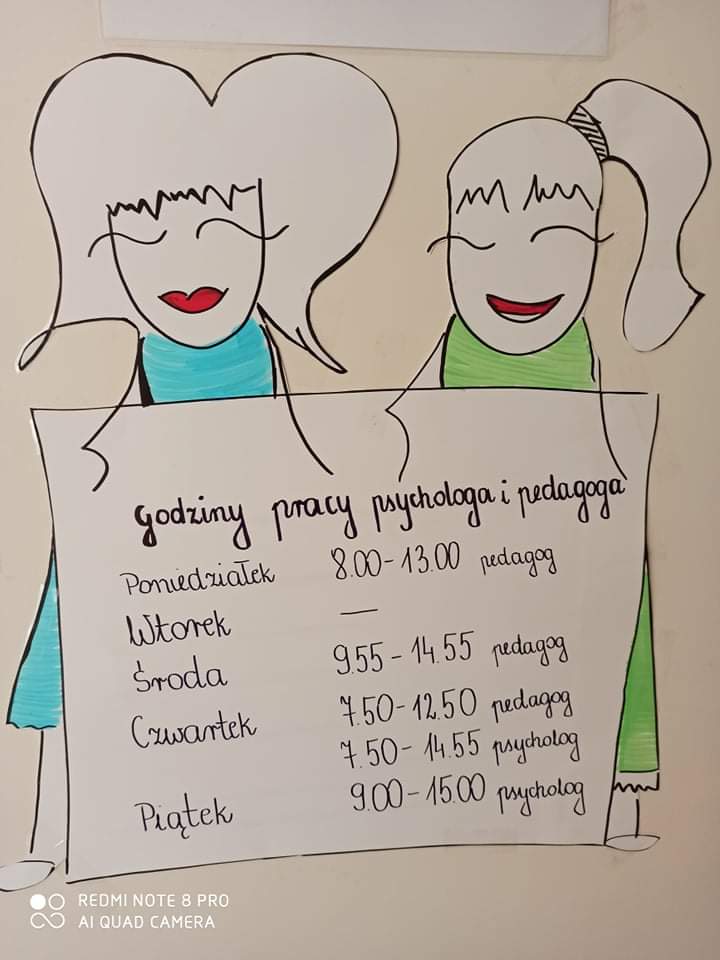 Godziny pracy psychologa i pedagoga
Poniedziałek 8.00-13.00 pedagog
Wtorek —
Środa 9.55-14.55 pedagog
Czwartek 7.50-12.50 pedagog
7.50-14.55 psycholog
Piątek 9.00-15.00 psycholog
REDMI NOTE 8 PRO
AI QUAD CAMERA